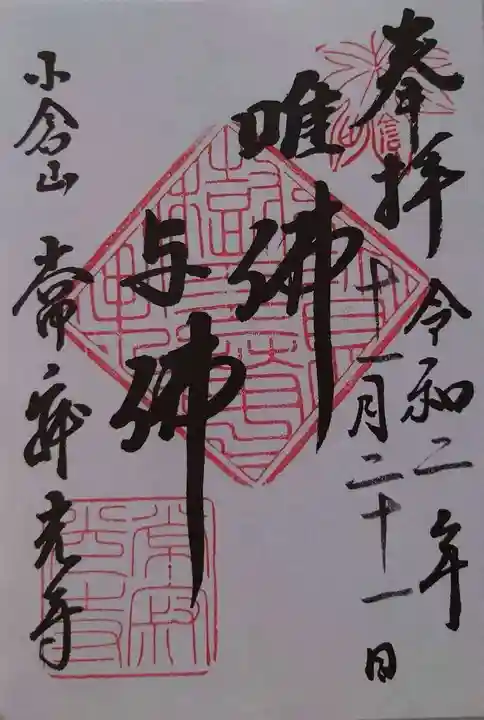 奉拝
令和二年
十一月二十一日
唯佛
与佛
小倉山
常寂光寺